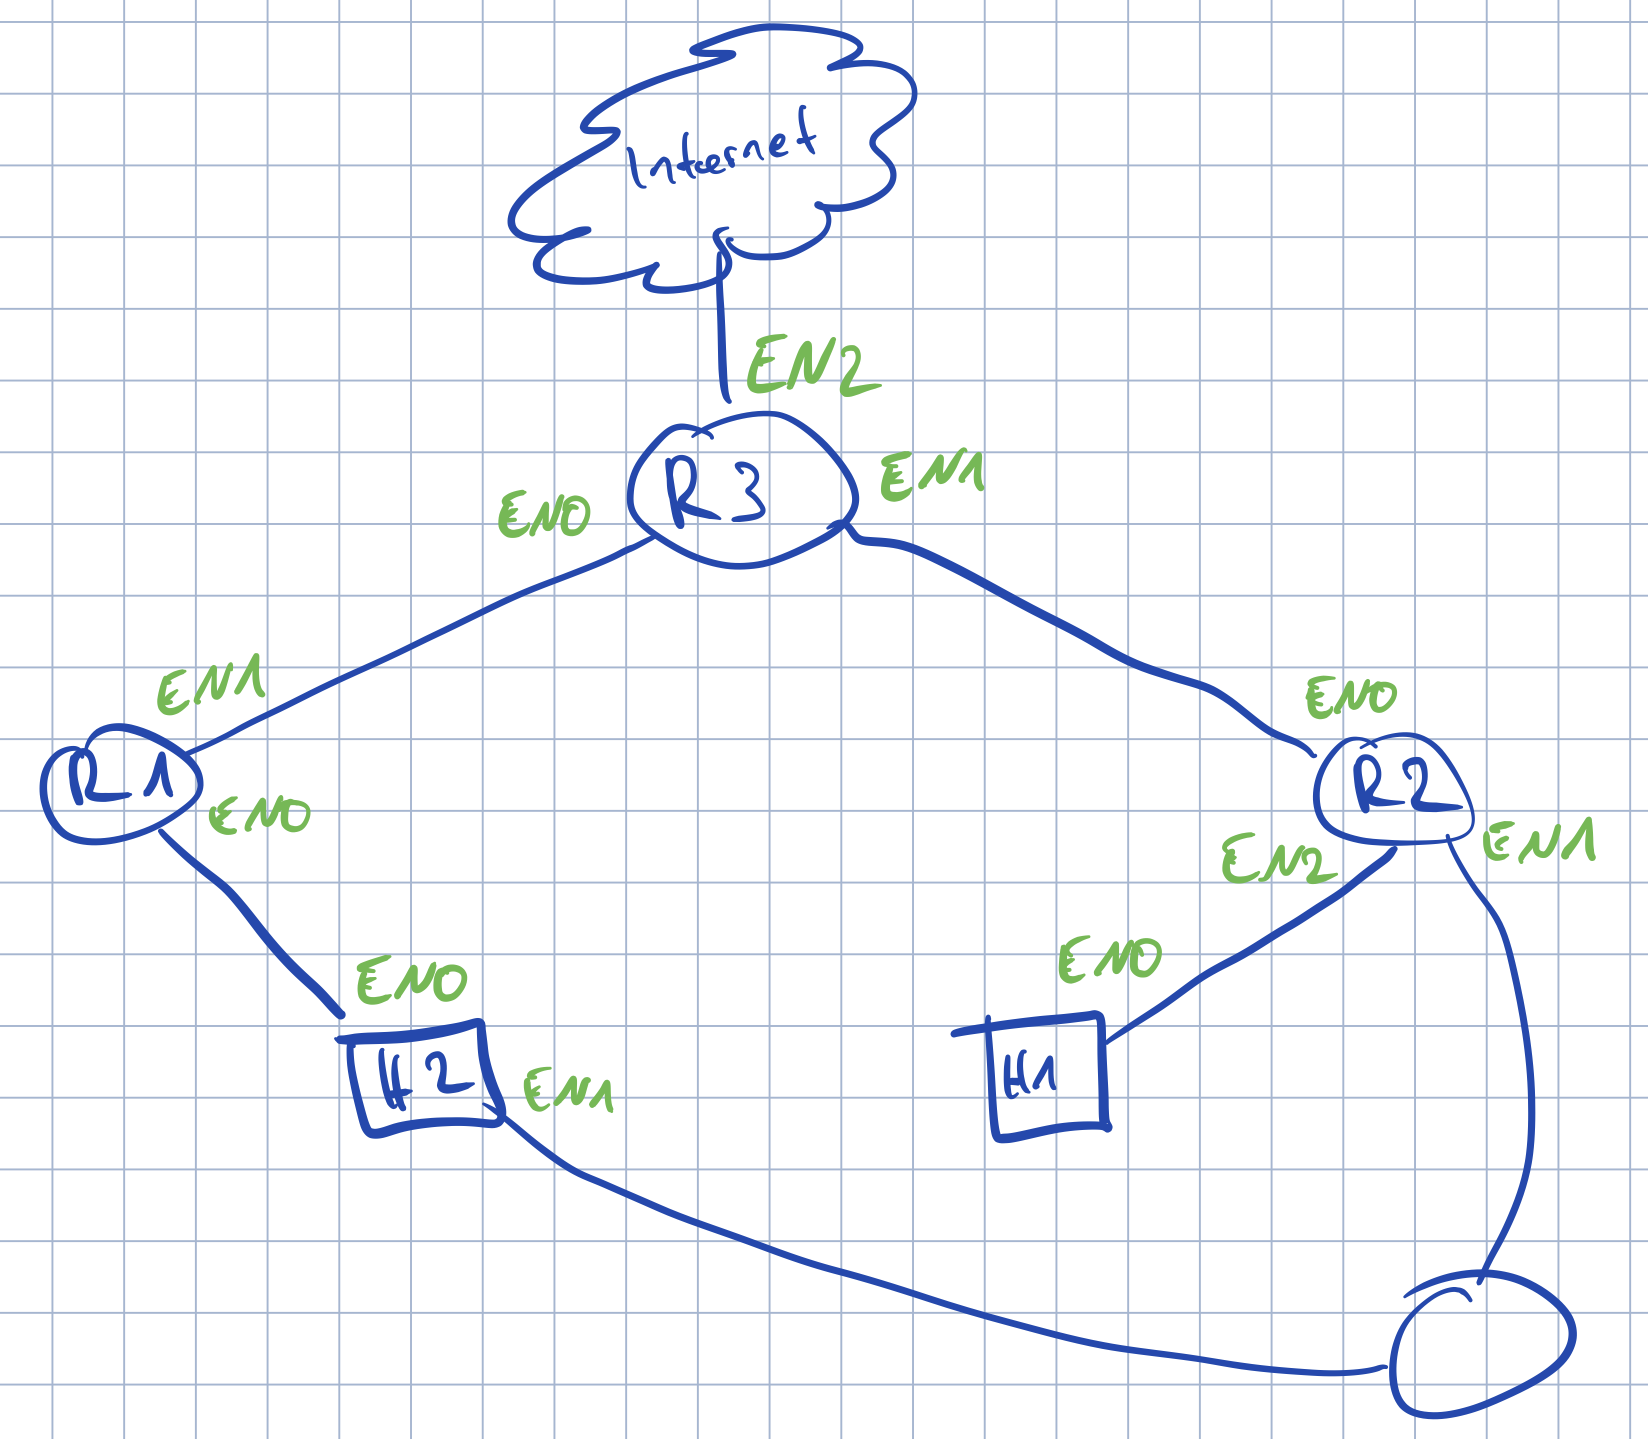 Internet
EN2
R3
EN1
EN0
EN1
R1
EN0
EN0
R2
EN2
EN1
EN0
H2
EN1
EN0
H1